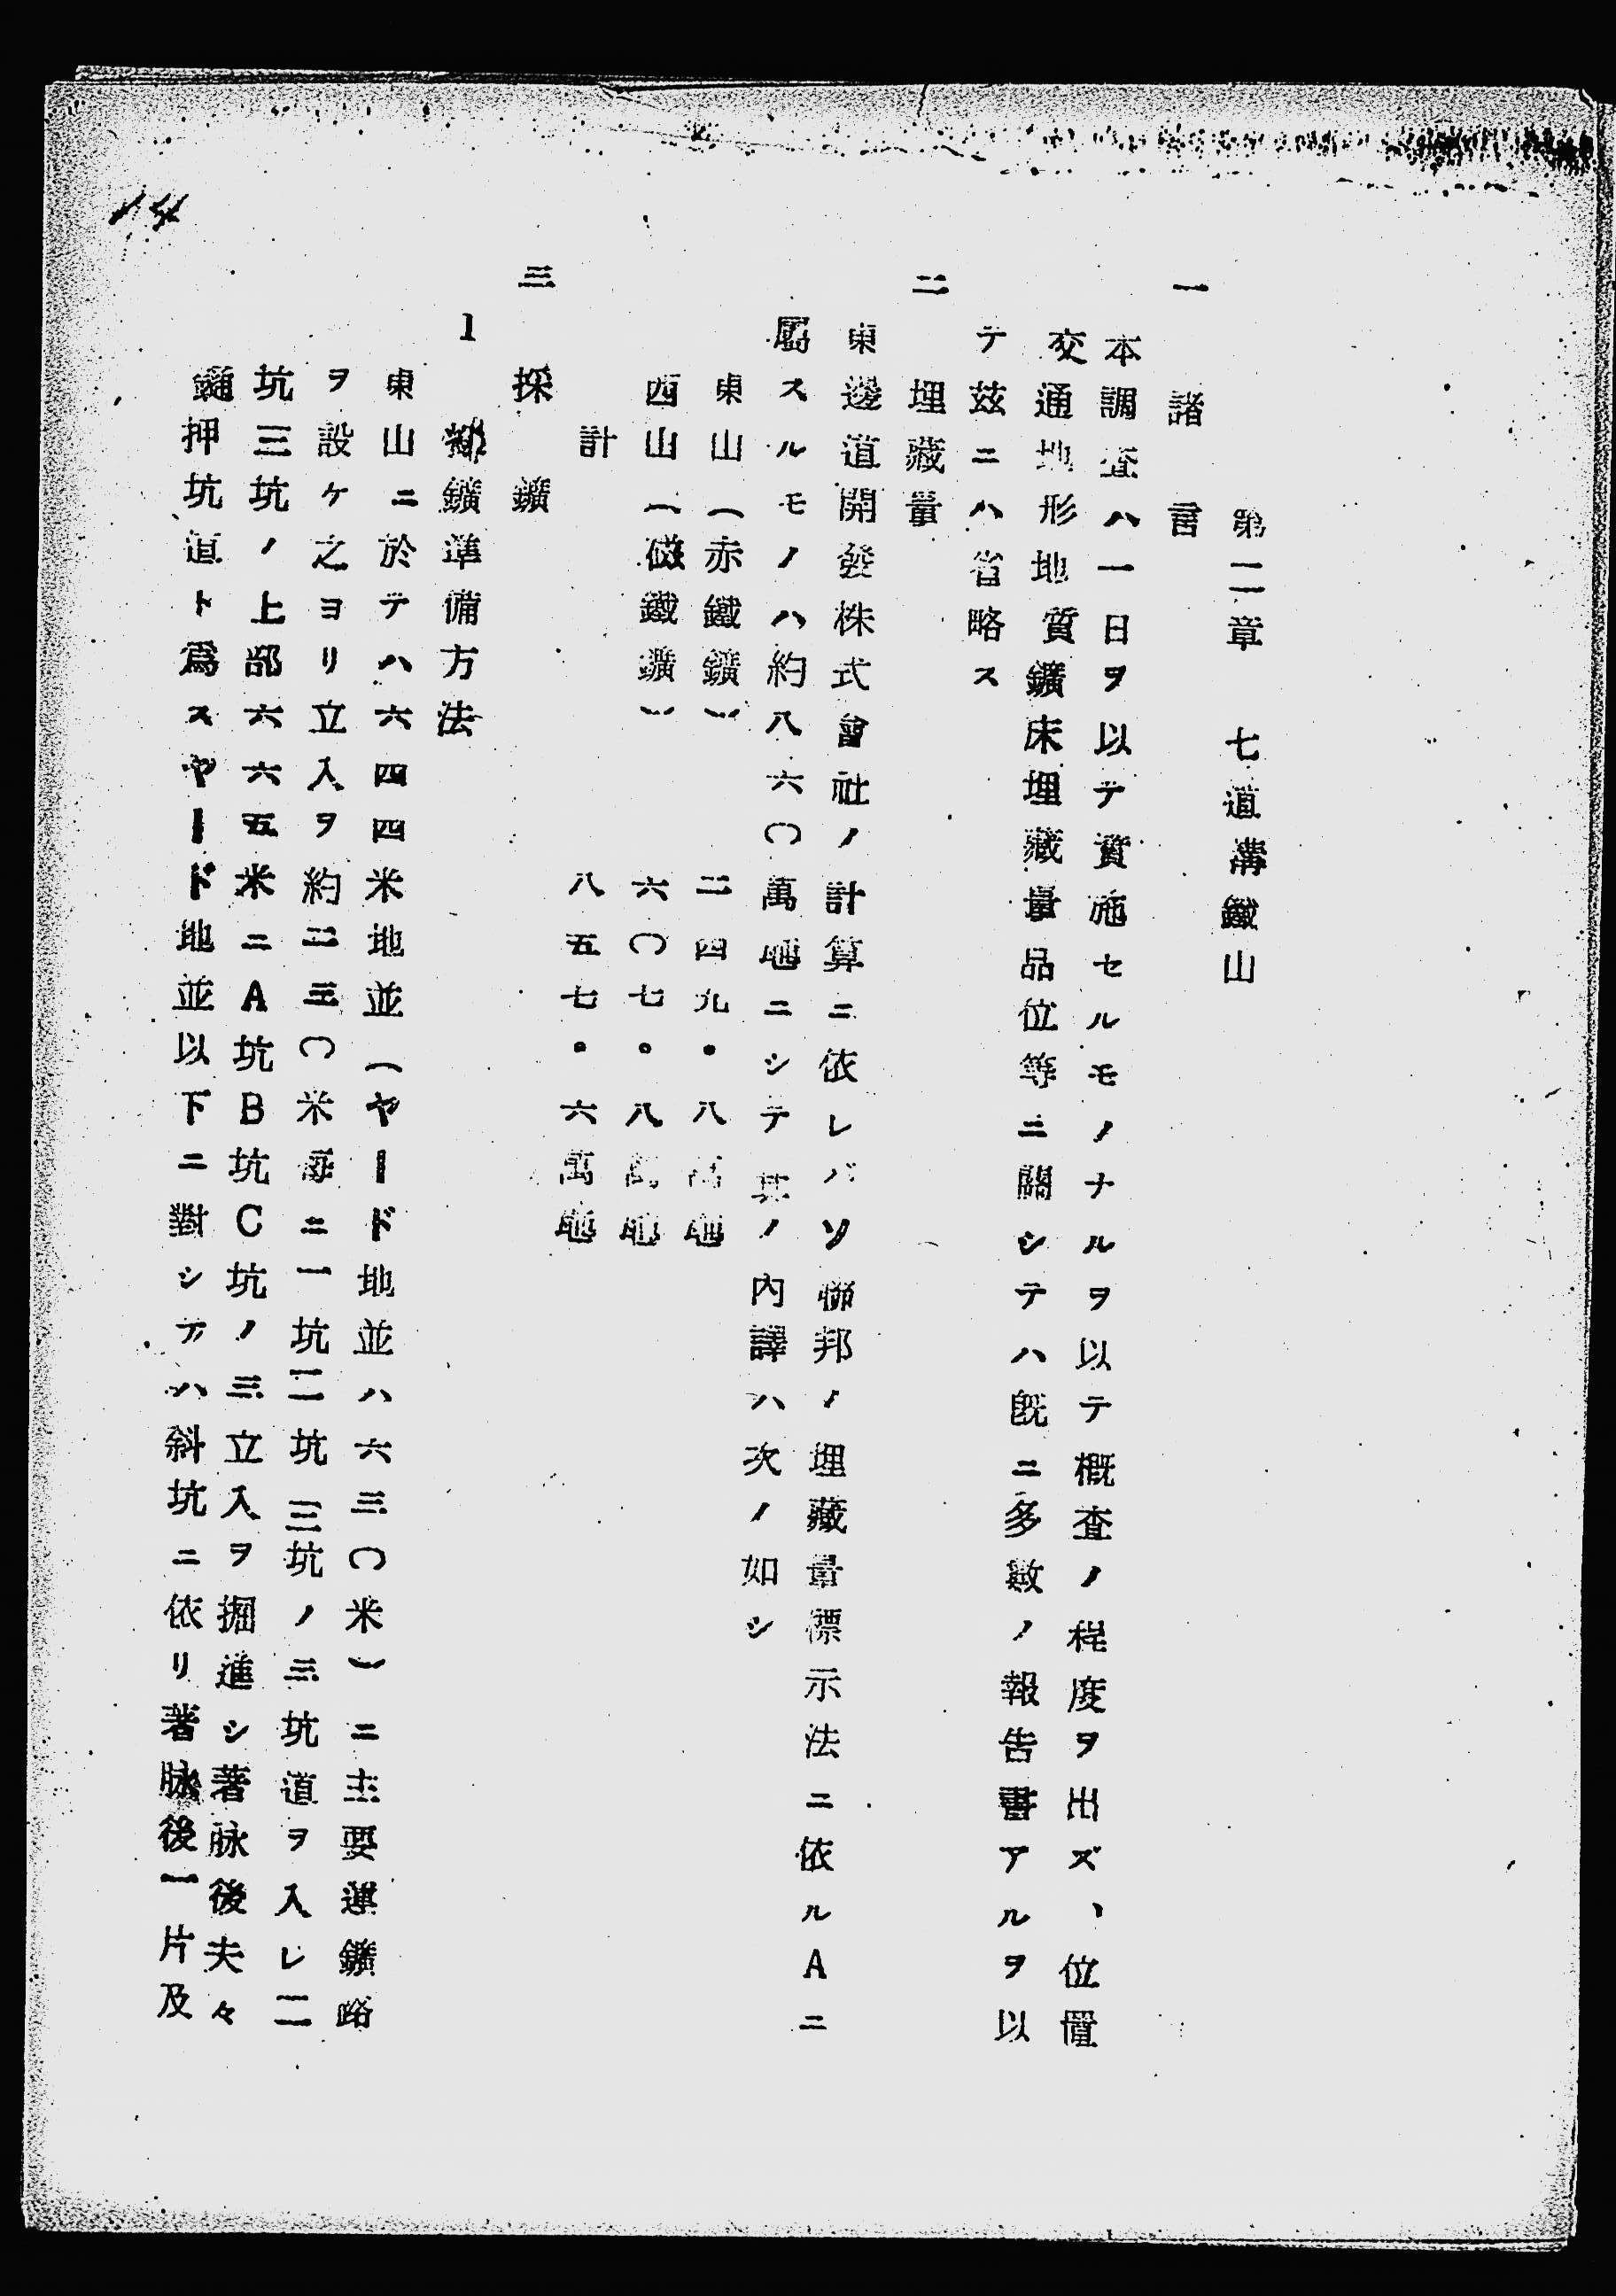 14
第二章　七道溝鐵山
一　諸言
本調査ハ一日ヲ以テ實施セルモノナルヲ以テ概査ノ程度ヲ出ズ、位置
交通地形地質鑛床埋藏量品位等ニ關シテハ既ニ多數ノ報告書アルヲ以
テ茲ニハ省略ス
二　埋藏量
東邊道開發株式會社ノ計算ニ依レバソ聯邦ノ埋藏量標示法ニ依ルAニ
屬スルモノハ約八六〇萬瓲ニシテ其ノ內譯ハ次ノ如シ
東山（赤鐵鑛）　二四九・八萬瓲
西山（磁鐵鑛）　六〇七・八萬瓲
計　八五七・六萬瓲
三　採鑛
1　鑛準備方法
東山ニ於テハ六四四米地並（ヤードド地並ハ六三〇米）ニ主要運鑛路
ヲ設ケ之ヨリ立入ヲ約二三〇米每ニ一坑二坑三坑ノ三坑道ヲ入レ二
坑三坑ノ上部六六五米ニA坑B坑C坑ノ三立入ヲ掘進シ著脉後夫々
鑓押坑道ト爲スヤード地並以下ニ對シテハ斜坑ニ依リ著脉後一片及